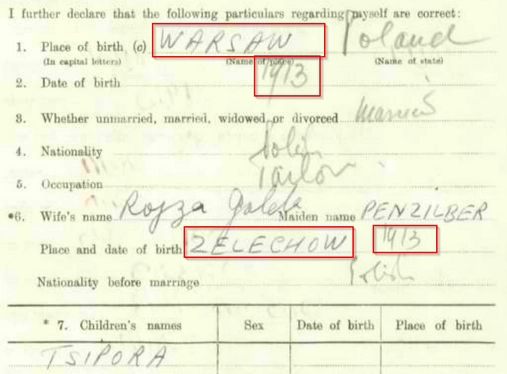 I further declare that the following particulars regarding myself are correct:
1. Place of birth (c) WARSAW Poland
(In capital letters) (Name of place) (Name of state)
2. Date of birth 1913
3. Whether unmarried, married, widowed or divorced Married
4. Nationality Polish
5. Occupation Tailor
*6. Wife's name Rojza Maiden name PENZILBER
Place and date of birth ZELECHOW 1913
Nationality before marriage Polish
* 7. Children's names Sex Date of birth Place of birth
TSIPORA